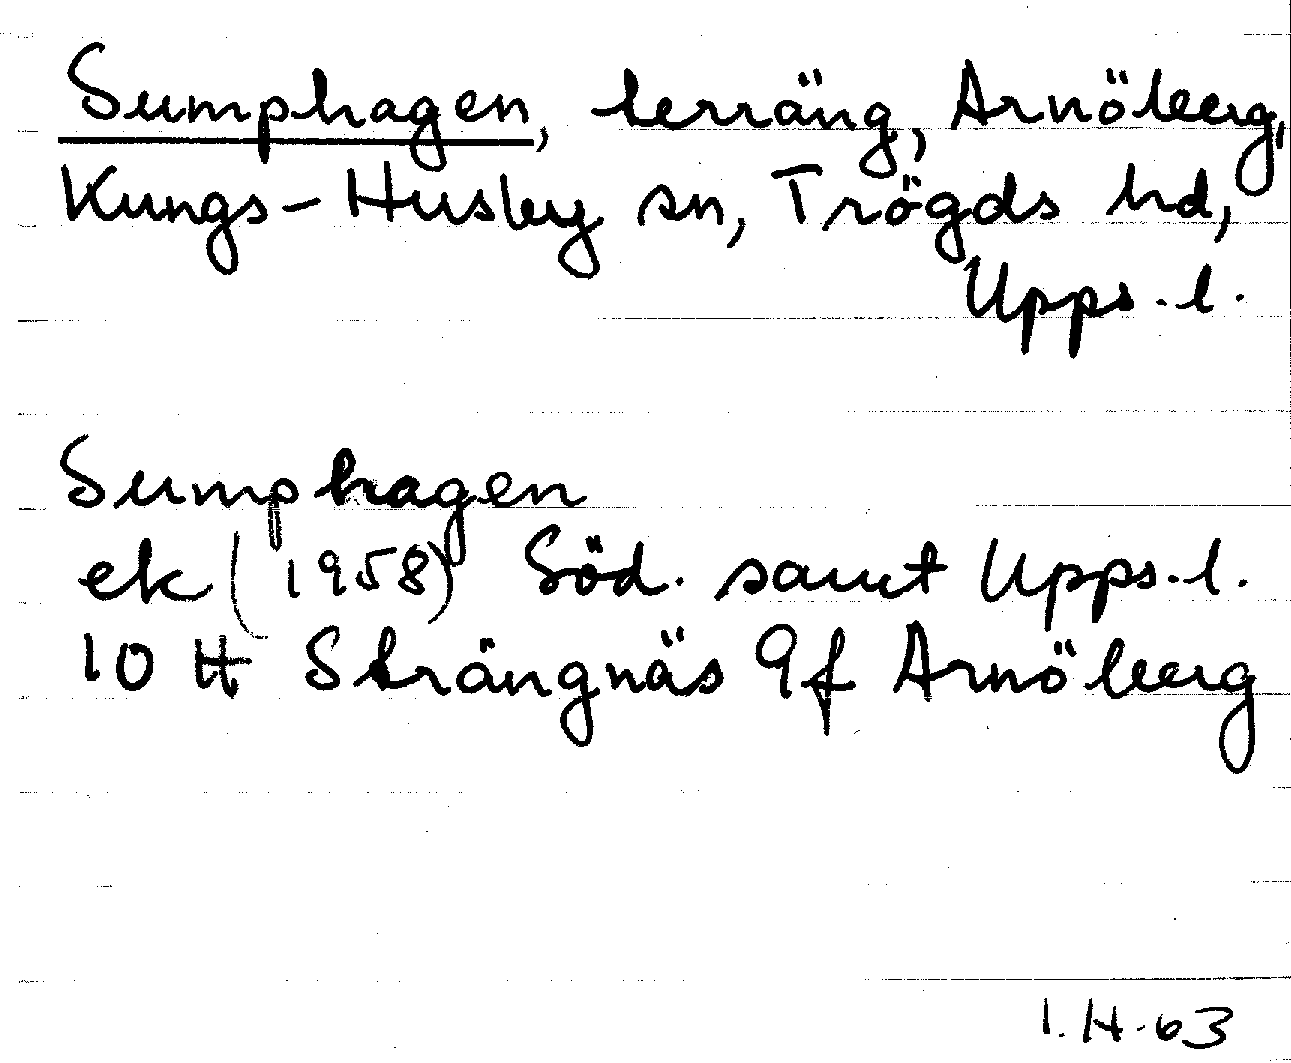 Sumphagen, terräng, Arnöberg,
Kungs-Husby sn, Trögds hd,
Upps. l.
Sumphagen
ek (1958) Söd. samt Upps. l.
10 H Strängnäs 9f Arnöberg
I.H. 63